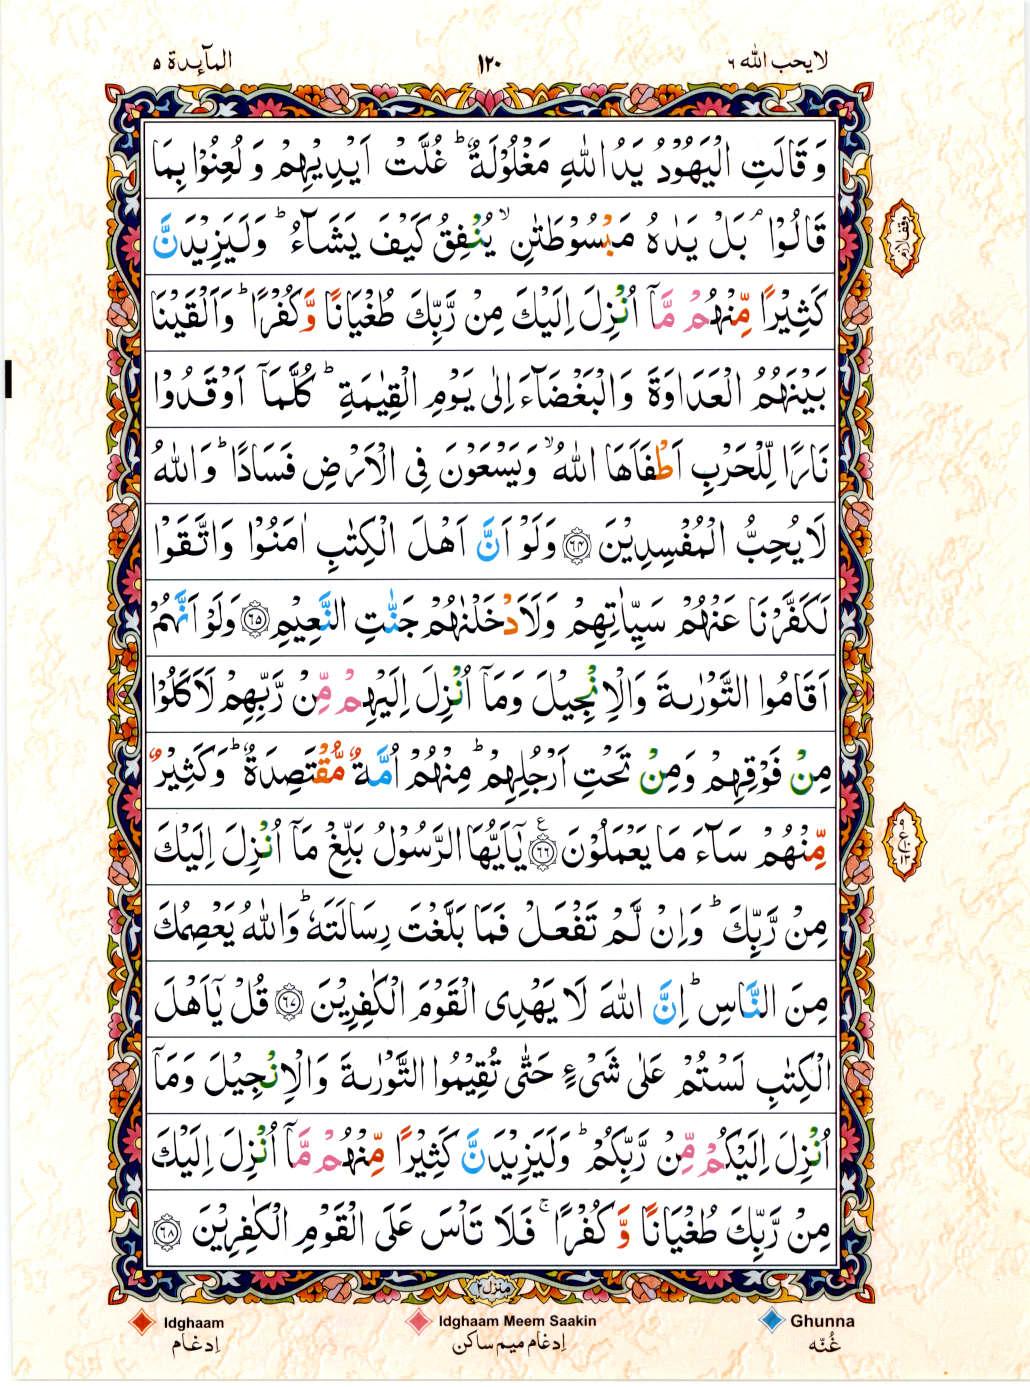 المآىِٕدة ٥
١٢٠
لا يحب الله ٦
وَ قَالَتِ الْیَهُوْدُ یَدُ اللّٰهِ مَغْلُوْلَةٌ ؕ غُلَّتْ اَیْدِیْهِمْ وَ لُعِنُوْا بِمَا
قَالُوْا ۘ بَلْ یَدٰهُ مَبْسُوْطَتٰنِ ۙ یُنْفِقُ كَیْفَ یَشَآءُ ؕ وَلَیَزِیْدَنَّ
كَثِیْرًا مِّنْهُمْ مَّاۤ اُنْزِلَ اِلَیْكَ مِنْ رَّبِّكَ طُغْیَانًا وَّكُفْرًا ؕ وَاَلْقَیْنَا
بَیْنَهُمُ الْعَدَاوَةَ وَالْبَغْضَآءَ اِلٰی یَوْمِ الْقِیٰمَةِ ؕ كُلَّمَاۤ اَوْقَدُوْا
نَارًا لِّلْحَرْبِ اَطْفَاَهَا اللّٰهُ ۙ وَیَسْعَوْنَ فِی الْاَرْضِ فَسَادًا ؕ وَاللّٰهُ
لَا یُحِبُّ الْمُفْسِدِیْنَ ۝٦٤ وَلَوْ اَنَّ اَهْلَ الْكِتٰبِ اٰمَنُوْا وَاتَّقَوْا
لَكَفَّرْنَا عَنْهُمْ سَیِّاٰتِهِمْ وَلَاَدْخَلْنٰهُمْ جَنّٰتِ النَّعِیْمِ ۝٦٥ وَلَوْ اَنَّهُمْ
اَقَامُوا التَّوْرٰىةَ وَالْاِنْجِیْلَ وَمَاۤ اُنْزِلَ اِلَیْهِمْ مِّنْ رَّبِّهِمْ لَاَكَلُوْا
مِنْ فَوْقِهِمْ وَمِنْ تَحْتِ اَرْجُلِهِمْ ؕ مِنْهُمْ اُمَّةٌ مُّقْتَصِدَةٌ ؕ وَكَثِیْرٌ
مِّنْهُمْ سَآءَ مَا یَعْمَلُوْنَ ۝٦٦ یٰۤاَیُّهَا الرَّسُوْلُ بَلِّغْ مَاۤ اُنْزِلَ اِلَیْكَ
مِنْ رَّبِّكَ ؕ وَاِنْ لَّمْ تَفْعَلْ فَمَا بَلَّغْتَ رِسَالَتَهٗ ؕ وَاللّٰهُ یَعْصِمُكَ
مِنَ النَّاسِ ؕ اِنَّ اللّٰهَ لَا یَهْدِی الْقَوْمَ الْكٰفِرِیْنَ ۝٦٧ قُلْ یٰۤاَهْلَ
الْكِتٰبِ لَسْتُمْ عَلٰی شَیْءٍ حَتّٰی تُقِیْمُوا التَّوْرٰىةَ وَالْاِنْجِیْلَ وَمَاۤ
اُنْزِلَ اِلَیْكُمْ مِّنْ رَّبِّكُمْ ؕ وَلَیَزِیْدَنَّ كَثِیْرًا مِّنْهُمْ مَّاۤ اُنْزِلَ اِلَیْكَ
مِنْ رَّبِّكَ طُغْیَانًا وَّكُفْرًا ۚ فَلَا تَاْسَ عَلَی الْقَوْمِ الْكٰفِرِیْنَ ۝٦٨
وقف لازم
منزل ٢
Idghaam
Idghaam Meem Saakin
Ghunna
اِدغام
اِدغام میم ساکن
غُنّه